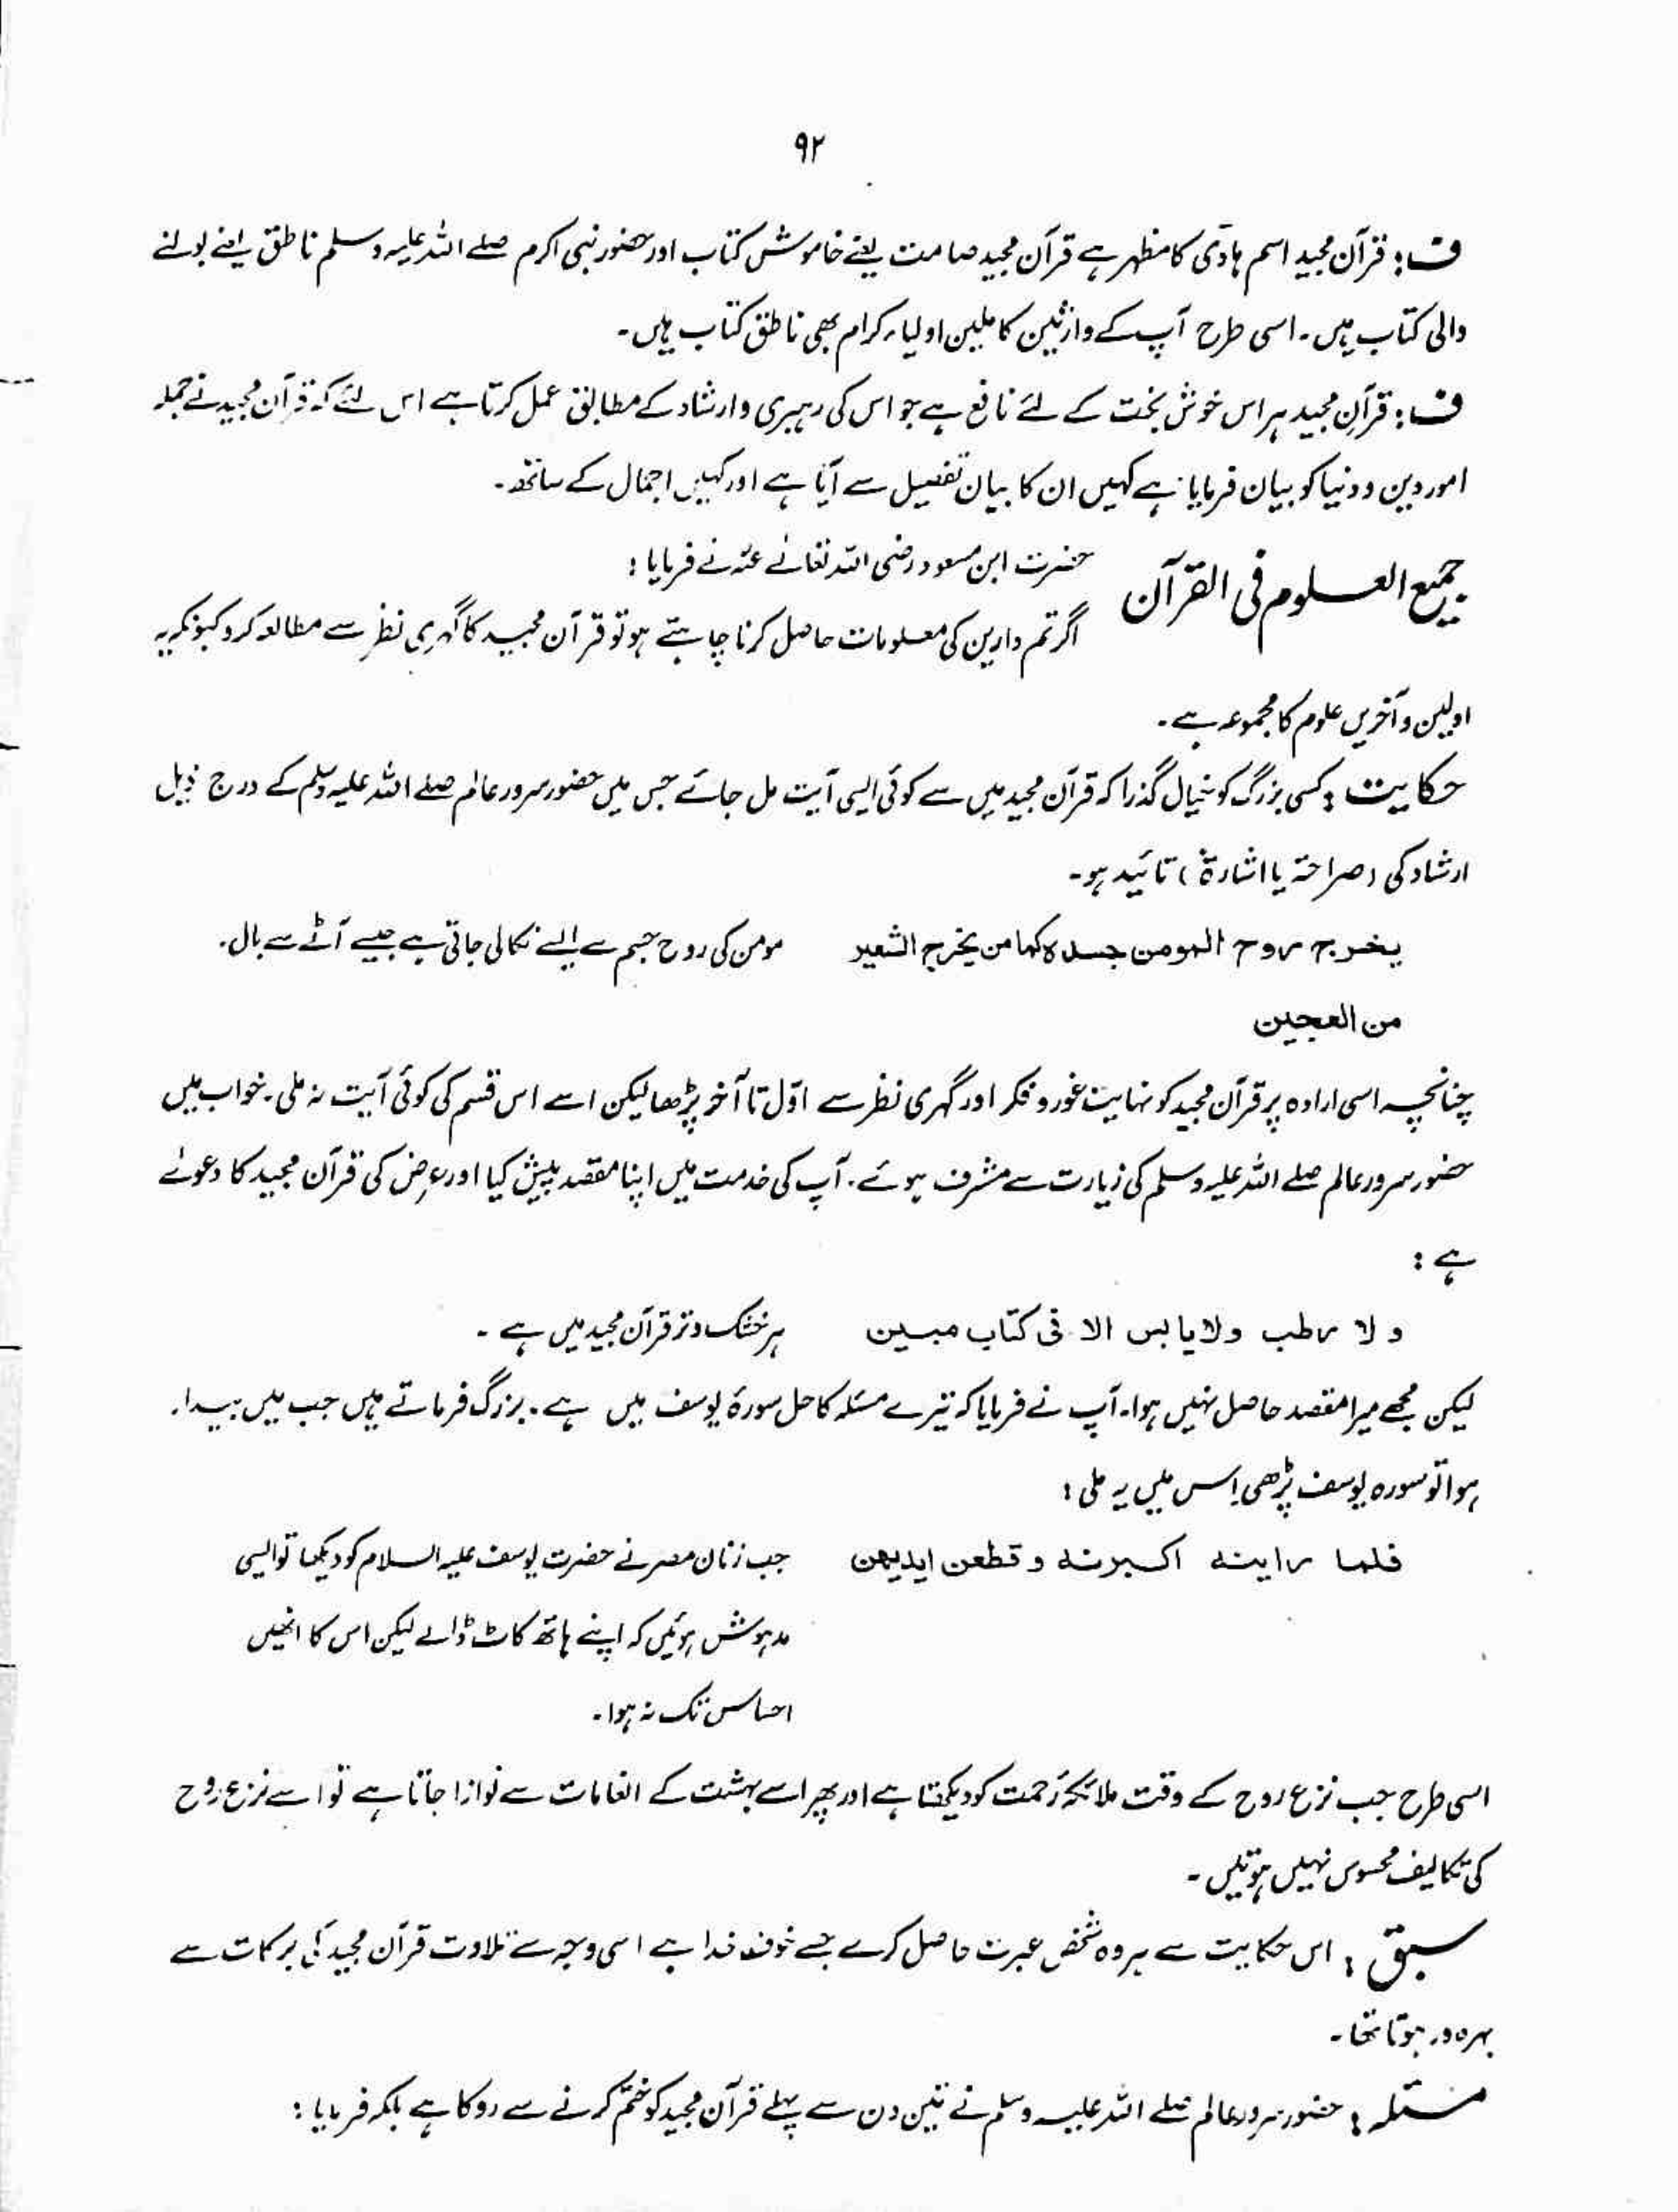 ۹۲
ف: قرآن مجید اسم ہادی کا مظہر ہے قرآن مجید صامت یعنے خاموش کتاب اور حضور نبی اکرم صلے اللہ علیہ وسلم ناطق یعنے بولنے
والی کتاب ہیں۔ اسی طرح آپ کے وارثین کاملین اولیاء کرام بھی ناطق کتاب ہیں۔
ف: قرآن مجید ہر اس خوش بخت کے لئے نافع ہے جو اس کی رہبری و ارشاد کے مطابق عمل کرتا ہے اس لئے کہ قرآن مجید نے جملہ
امور دین و دنیا کو بیان فرمایا ہے کہیں ان کا بیان تفصیل سے آیا ہے اور کہیں اجمال کے ساتھ۔
جمیع العلوم فی القرآن
حضرت ابن مسعود رضی اللہ تعالٰے عنہ نے فرمایا:
اگر تم دارین کی معلومات حاصل کرنا چاہتے ہو تو قرآن مجید کا گہری نظر سے مطالعہ کرو کیونکہ یہ
اولین و آخریں علوم کا مجموعہ ہے۔
حکایت: کسی بزرگ کو خیال گذرا کہ قرآن مجید میں سے کوئی ایسی آیت مل جائے جس میں حضور سرور عالم صلے اللہ علیہ وسلم کے درج ذیل
ارشاد کی (صراحۃً یا اشارۃً) تائید ہو۔
یخرج روح المومن جسدہ کما من یخرج الشعیر مومن کی روح جسم سے ایسے نکالی جاتی ہے جیسے آٹے سے بال۔
من العجین
چنانچہ اسی ارادہ پر قرآن مجید کو نہایت غور و فکر اور گہری نظر سے اوّل تا آخر پڑھا لیکن اسے اس قسم کی کوئی آیت نہ ملی۔ خواب میں
حضور سرور عالم صلے اللہ علیہ وسلم کی زیارت سے مشرف ہوئے۔ آپ کی خدمت میں اپنا مقصد پیش کیا اور عرض کی قرآن مجید کا دعوٰے
ہے:
و لا رطب ولا یابس الا فی کتاب مبین ہر خشک و تر قرآن مجید میں ہے۔
لیکن مجھے میرا مقصد حاصل نہیں ہوا۔ آپ نے فرمایا کہ تیرے مسئلہ کا حل سورۂ یوسف میں ہے۔ بزرگ فرماتے ہیں جب میں بیدار
ہوا تو سورہ یوسف پڑھی اس میں یہ ملی:
فلما راینہ اکبرنہ و قطعن ایدیھن جب زنان مصر نے حضرت یوسف علیہ السلام کو دیکھا تو ایسی
مدہوش ہوئیں کہ اپنے ہاتھ کاٹ ڈالے لیکن اس کا انھیں
احساس تک نہ ہوا۔
اسی طرح جب نزع روح کے وقت ملائکۂ رحمت کو دیکھتا ہے اور پھر اسے بہشت کے انعامات سے نوازا جاتا ہے تو اسے نزع روح
کی تکالیف محسوس نہیں ہوتیں۔
سبق: اس حکایت سے ہر وہ شخص عبرت حاصل کرے جسے خوف خدا ہے اسی وجہ سے تلاوت قرآن مجید کی برکات سے
بہرہ ور ہوتا تھا۔
مسئلہ: حضور سرور عالم صلے اللہ علیہ وسلم نے تین دن سے پہلے قرآن مجید کو ختم کرنے سے روکا ہے بلکہ فرمایا: